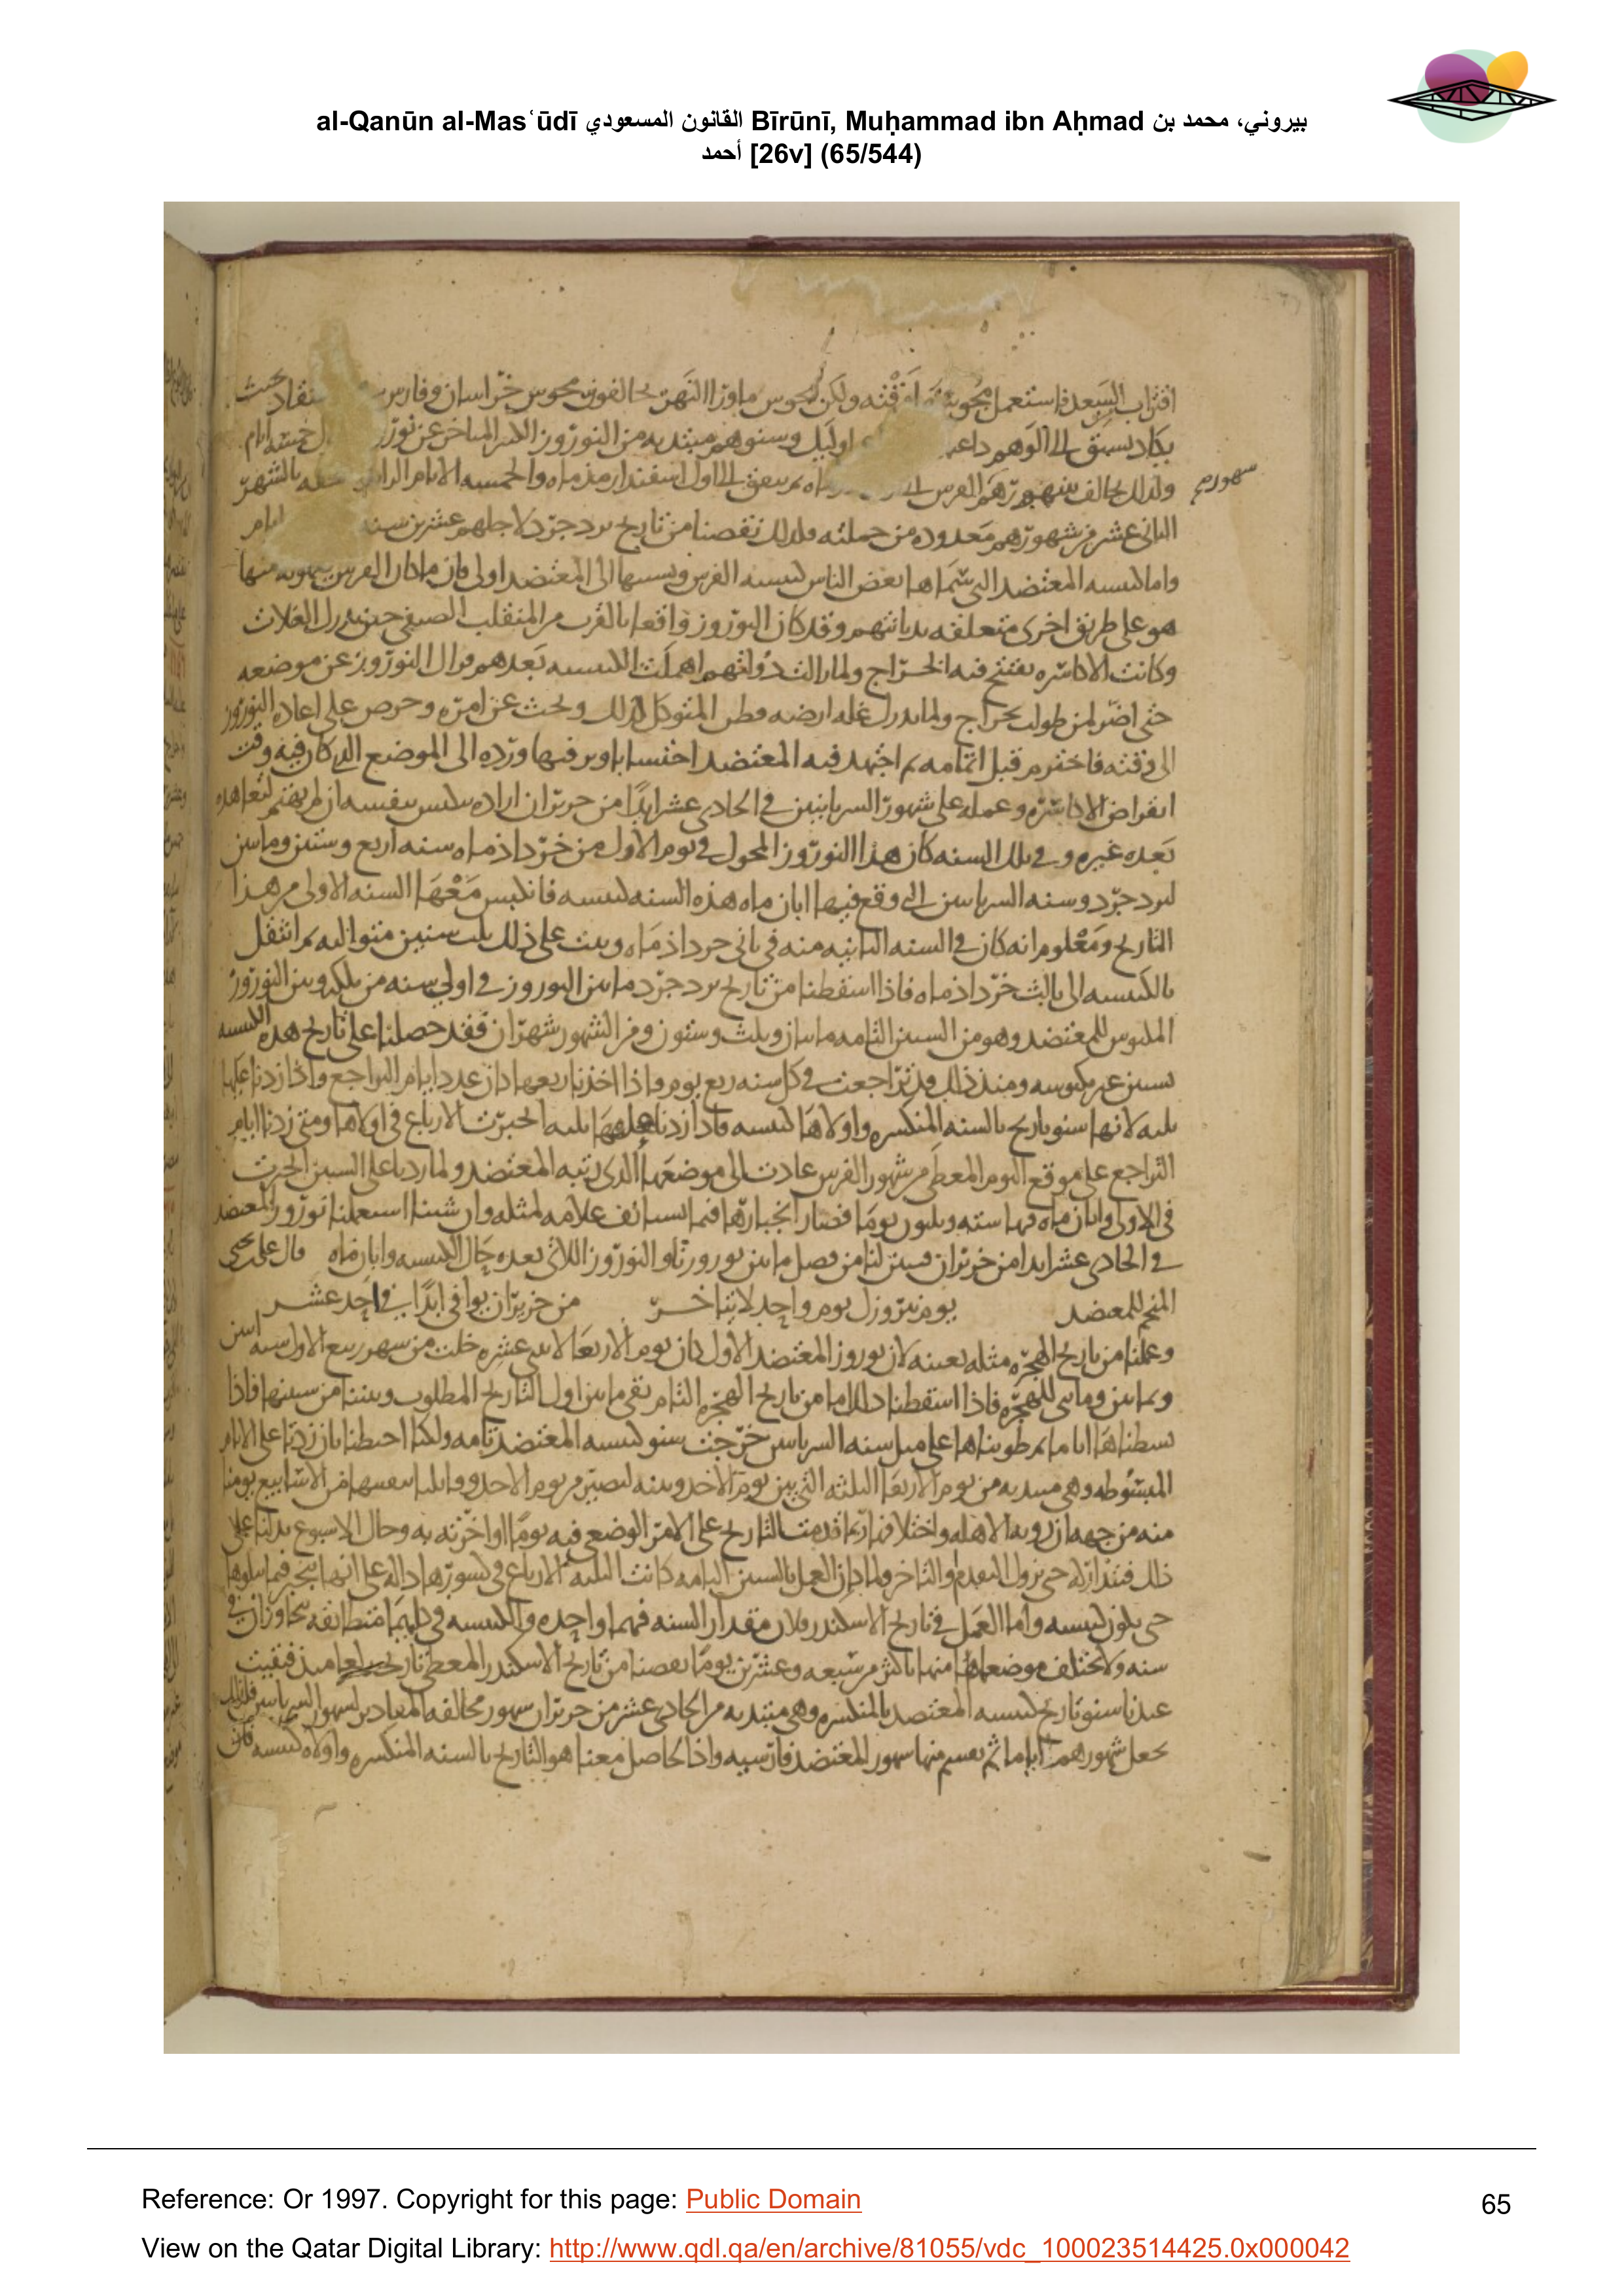 al-Qanūn al-Masʿūdī القانون المسعودي Bīrūnī, Muḥammad ibn Aḥmad بيروني، محمد بن
أحمد [26v] (65/544)
اقتراب السعد فاستعمل ولكن مجوس ماورا النهر يخالفون مجوس خراسان وفارس
يكاد يسبق الى الوهم اوليل وسنوهم مبتديه من النوروز المتاخر عن خمسه ايام
ولذلك يخالف شهورهم الفرس الى ماه ثم يتفق الى اول اسفندارمذماه والخمسه الايام بالشهر
شهورهم
الثانى عشر من شهورهم معدوده من جملته ولذلك نقصنا من تاريخ يزدجرد لاجلهم عشرين سنه ايام
واما كبيسه المعتضد التي سماها بعض الناس كبيسه الفرس ونسبتها الى المعتضد اولى فان ما كان الفرس منها
هو على طريق اخرى متعلقه بدياناتهم وقد كان النوروز واقعا بالقرب من المنقلب الصيفي حين تدرك الغلات
وكانت الاكاسره تفتتح فيه الخراج ولما زالت دولتهم اهملت الكبيسه بعدهم فزال النوروز عن موضعه
حتى اضر لمن طولب بخراج ولما يدرك غله ارضه وفطن المتوكل لذلك وبحث عن امره وحرص على اعاده النوروز
الى وقته فاخترم قبل اتمامه ثم اجتهد فيه المعتضد احتسابا ورده الى الموضع الذي كان فيه وقت
انقراض الاكاسره وعمله على شهور السريانيين في الحادى عشر ابدا من حزيران اراده بنفسه ان لم يهتم لتعاهده
بعده غيره وفي تلك السنه كان هذا النوروز المحول في يوم الاول من خرداذماه سنه اربع وستين ومايتين
ليزدجرد وسنه السريانيين التي وقع فيها ابان ماه هذه السنه كبيسه فانكبس معها السنه الاولى من هذا
التاريخ ومعلوم انه كان في السنه الثانيه منه في ثانى خرداذماه وثبت على ذلك ثلث سنين متواليه ثم انتقل
بالكبيسه الى ثالث خرداذماه فاذا اسقطنا من تاريخ يزدجرد ما بين النوروز في اولى سنه من ملكه وبين النوروز
المكبوس للمعتضد وهو من السنين التامه مايتان وثلث وستون ومن الشهور شهران فقد حصلنا على تاريخ هذه الكبيسه
بسنين غير مكبوسه ومنذ ذلك قد تراجعت في كل سنه ربع يوم واذا اخذنا ربعها كان عدد ايام التراجع واذا زدنا عليها
ثلثه لانها سنو تاريخ بالسنه المنكسره واولاها كبيسه فاذا زدنا عليها ثلثه انجبرت الارباع في اولاها ومتى زدنا ايام
التراجع على موقع اليوم المعطى من شهور الفرس عادت الى موضعها الذى رتبه المعتضد ولما زدنا على السنين انجبرت
في الاولى وابان ماه فيها سته وثلثون يوما فصار انجبارها فيما يستانف علامه لمثله وان شئنا استعملنا نوروز المعتضد
في الحادى عشر ابدا من حزيران فيبين لنا من فصل ما بين نوروزنا والنوروز الذى بعده حال الكبيسه وابان ماه قال على بن يحيى
المنجم للمعتضد يوم نيروزك يوم واحد لا يتاخر من حزيران يوافي ابدا في احد عشر
وعملنا من تاريخ الهجره مثله بعينه لان نوروز المعتضد الاول كان يوم الاربعا لاثنتى عشره خلت من شهر ربيع الاول سنه اثنين
وثمانين ومايتى للهجره فاذا اسقطنا ذلك من تاريخ الهجره التام بقى ما بين اول التاريخ المطلوب وبيننا من سنينها فاذا
بسطناها اياما ثم طويناها على مثل سنه السريانيين خرجت سنو كبيسه المعتضد تامه ولكنا احتطنا بان زدنا على الايام
المبسوطه وهى مبتديه من يوم الاربعا الثلثه التي بين يوم الاحد وبينه لتصير من يوم الاحد
منه من جهه ان رويه الاهله واختلافها ربما قدمت التاريخ على الامر الوضعى فيه يوما او اخرته به وحال الاسبوع يدلنا على
ذلك فنتداركه حتى يزول التقدم والتاخر ولما كان العمل بالسنين التامه كانت الثلثه الارباع في كسورها داله على انها تنجبر فيما يتلوها
حتى يكون كبيسه واما العمل في تاريخ الاسكندر فلان مقدار السنه فيهما واحده والكبيسه في كليهما متطابقه
سنه ولا يختلف موضعاهما منها باكثر من سبعه وعشرين يوما نقصنا من تاريخ الاسكندر المعطى فبقيت
عندنا سنو تاريخ كبيسه المعتضد بالمنكسره وهى مبتديه من الحادى عشر من حزيران بشهور مخالفه المقادير لشهور السريانيين فلذلك
نجعل شهورهم اياما ثم نقسم منها شهور المعتضد فارسيه واذا الحاصل معنا هو التاريخ بالسنه المنكسره واولاه كبيسه فان
Reference: Or 1997. Copyright for this page: Public Domain
65
View on the Qatar Digital Library: http://www.qdl.qa/en/archive/81055/vdc_100023514425.0x000042